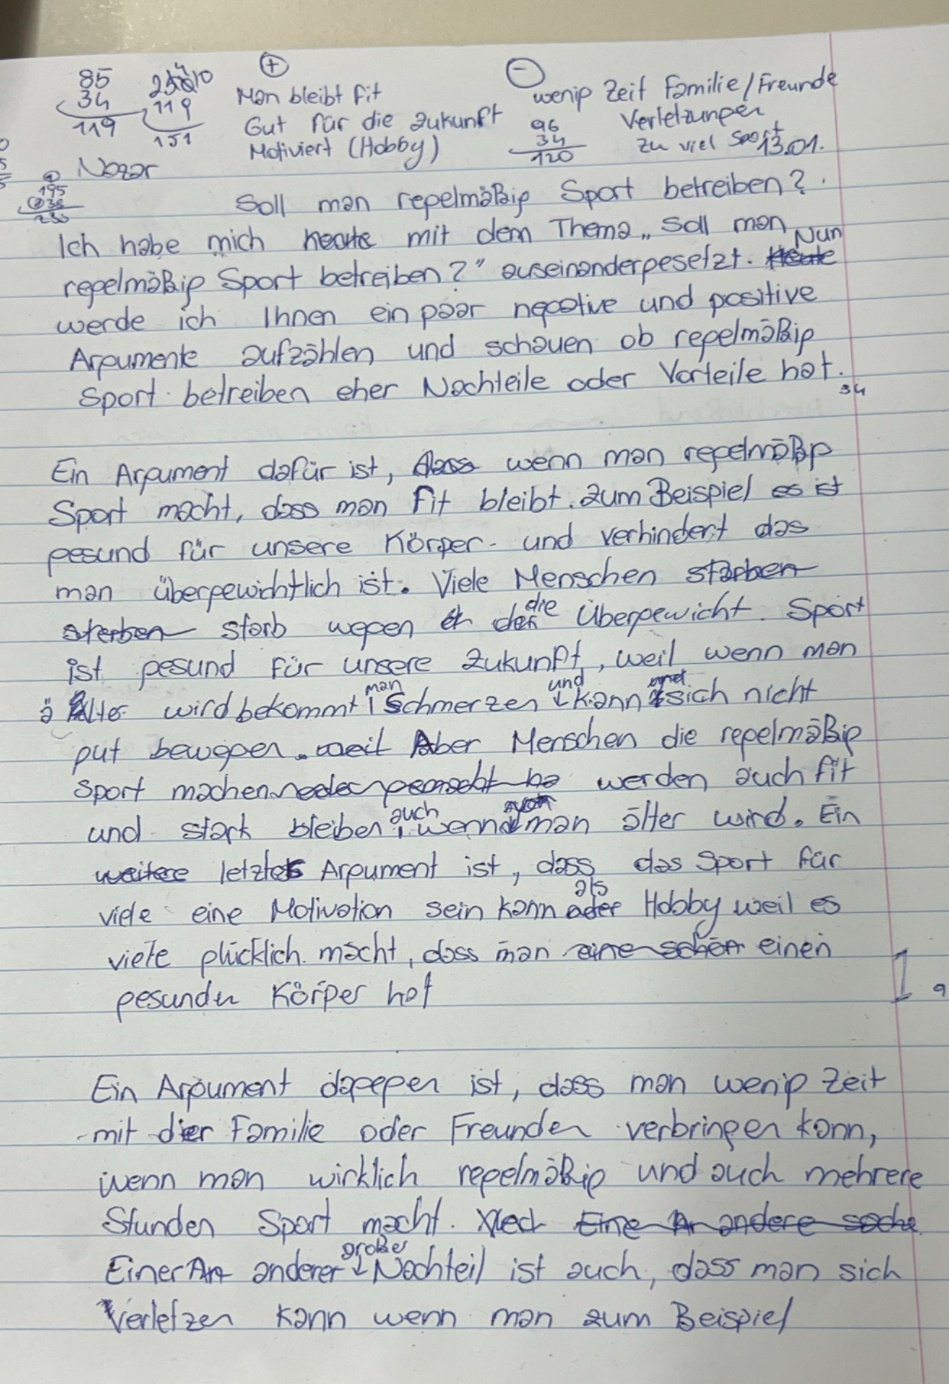 85 + -
34 119 Man bleibt fit wenig Zeit Familie/Freunde
119 151 Gut für die Zukunft 96 Verletzungen
Motiviert (Hobby) 34 zu viel Sport 13.01.
120
Nazar
195
Soll man regelmäßig Sport betreiben?
Ich habe mich heute mit dem Thema „Soll man
regelmäßig Sport betreiben?" auseinandergesetzt. Heute Nun
werde ich Ihnen ein paar negative und positive
Argumente aufzählen und schauen ob regelmäßig
Sport betreiben eher Nachteile oder Vorteile hat.
54
Ein Argument dafür ist, dass wenn man regelmäßg
Sport macht, dass man fit bleibt. Zum Beispiel es ist
gesund für unsere Körper und verhindert das
man übergewichtlich ist. Viele Menschen starben
sterben starb wegen die Übergewicht. Sport
ist gesund für unsere Zukunft, weil wenn man
älter wird bekommt man Schmerzen und kann sich nicht
gut bewegen. weil Aber Menschen die regelmäßig
Sport machen werden auch fit
und stark bleiben auch wenn man älter wird. Ein
weitere letztes Argument ist, dass das Sport für
viele eine Motivation sein kann oder als Hobby weil es
viele glücklich macht, dass man eine schön einen
gesunden Körper hat
1
Ein Argument dagegen ist, dass man wenig Zeit
mit der Familie oder Freunden verbringen kann,
wenn man wirklich regelmäßig und auch mehrere
Stunden Sport macht. Eine andere sache
Einer Art anderer großer Nachteil ist auch, dass man sich
Verletzen kann wenn man zum Beispiel